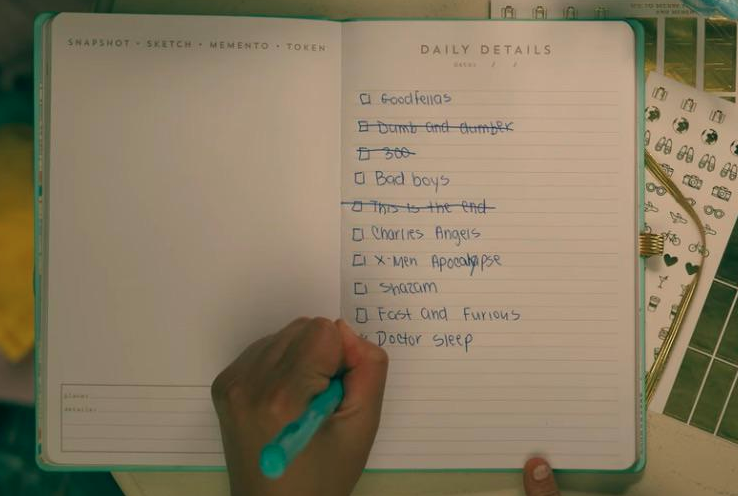 SNAPSHOT • SKETCH • MEMENTO • TOKEN
DAILY DETAILS
date: / /
Goodfellas
Dumb and dumber
300
Bad boys
This is the end
Charlies Angels
X-Men Apocalypse
Shazam
Fast and Furious
Doctor Sleep
place:
details: